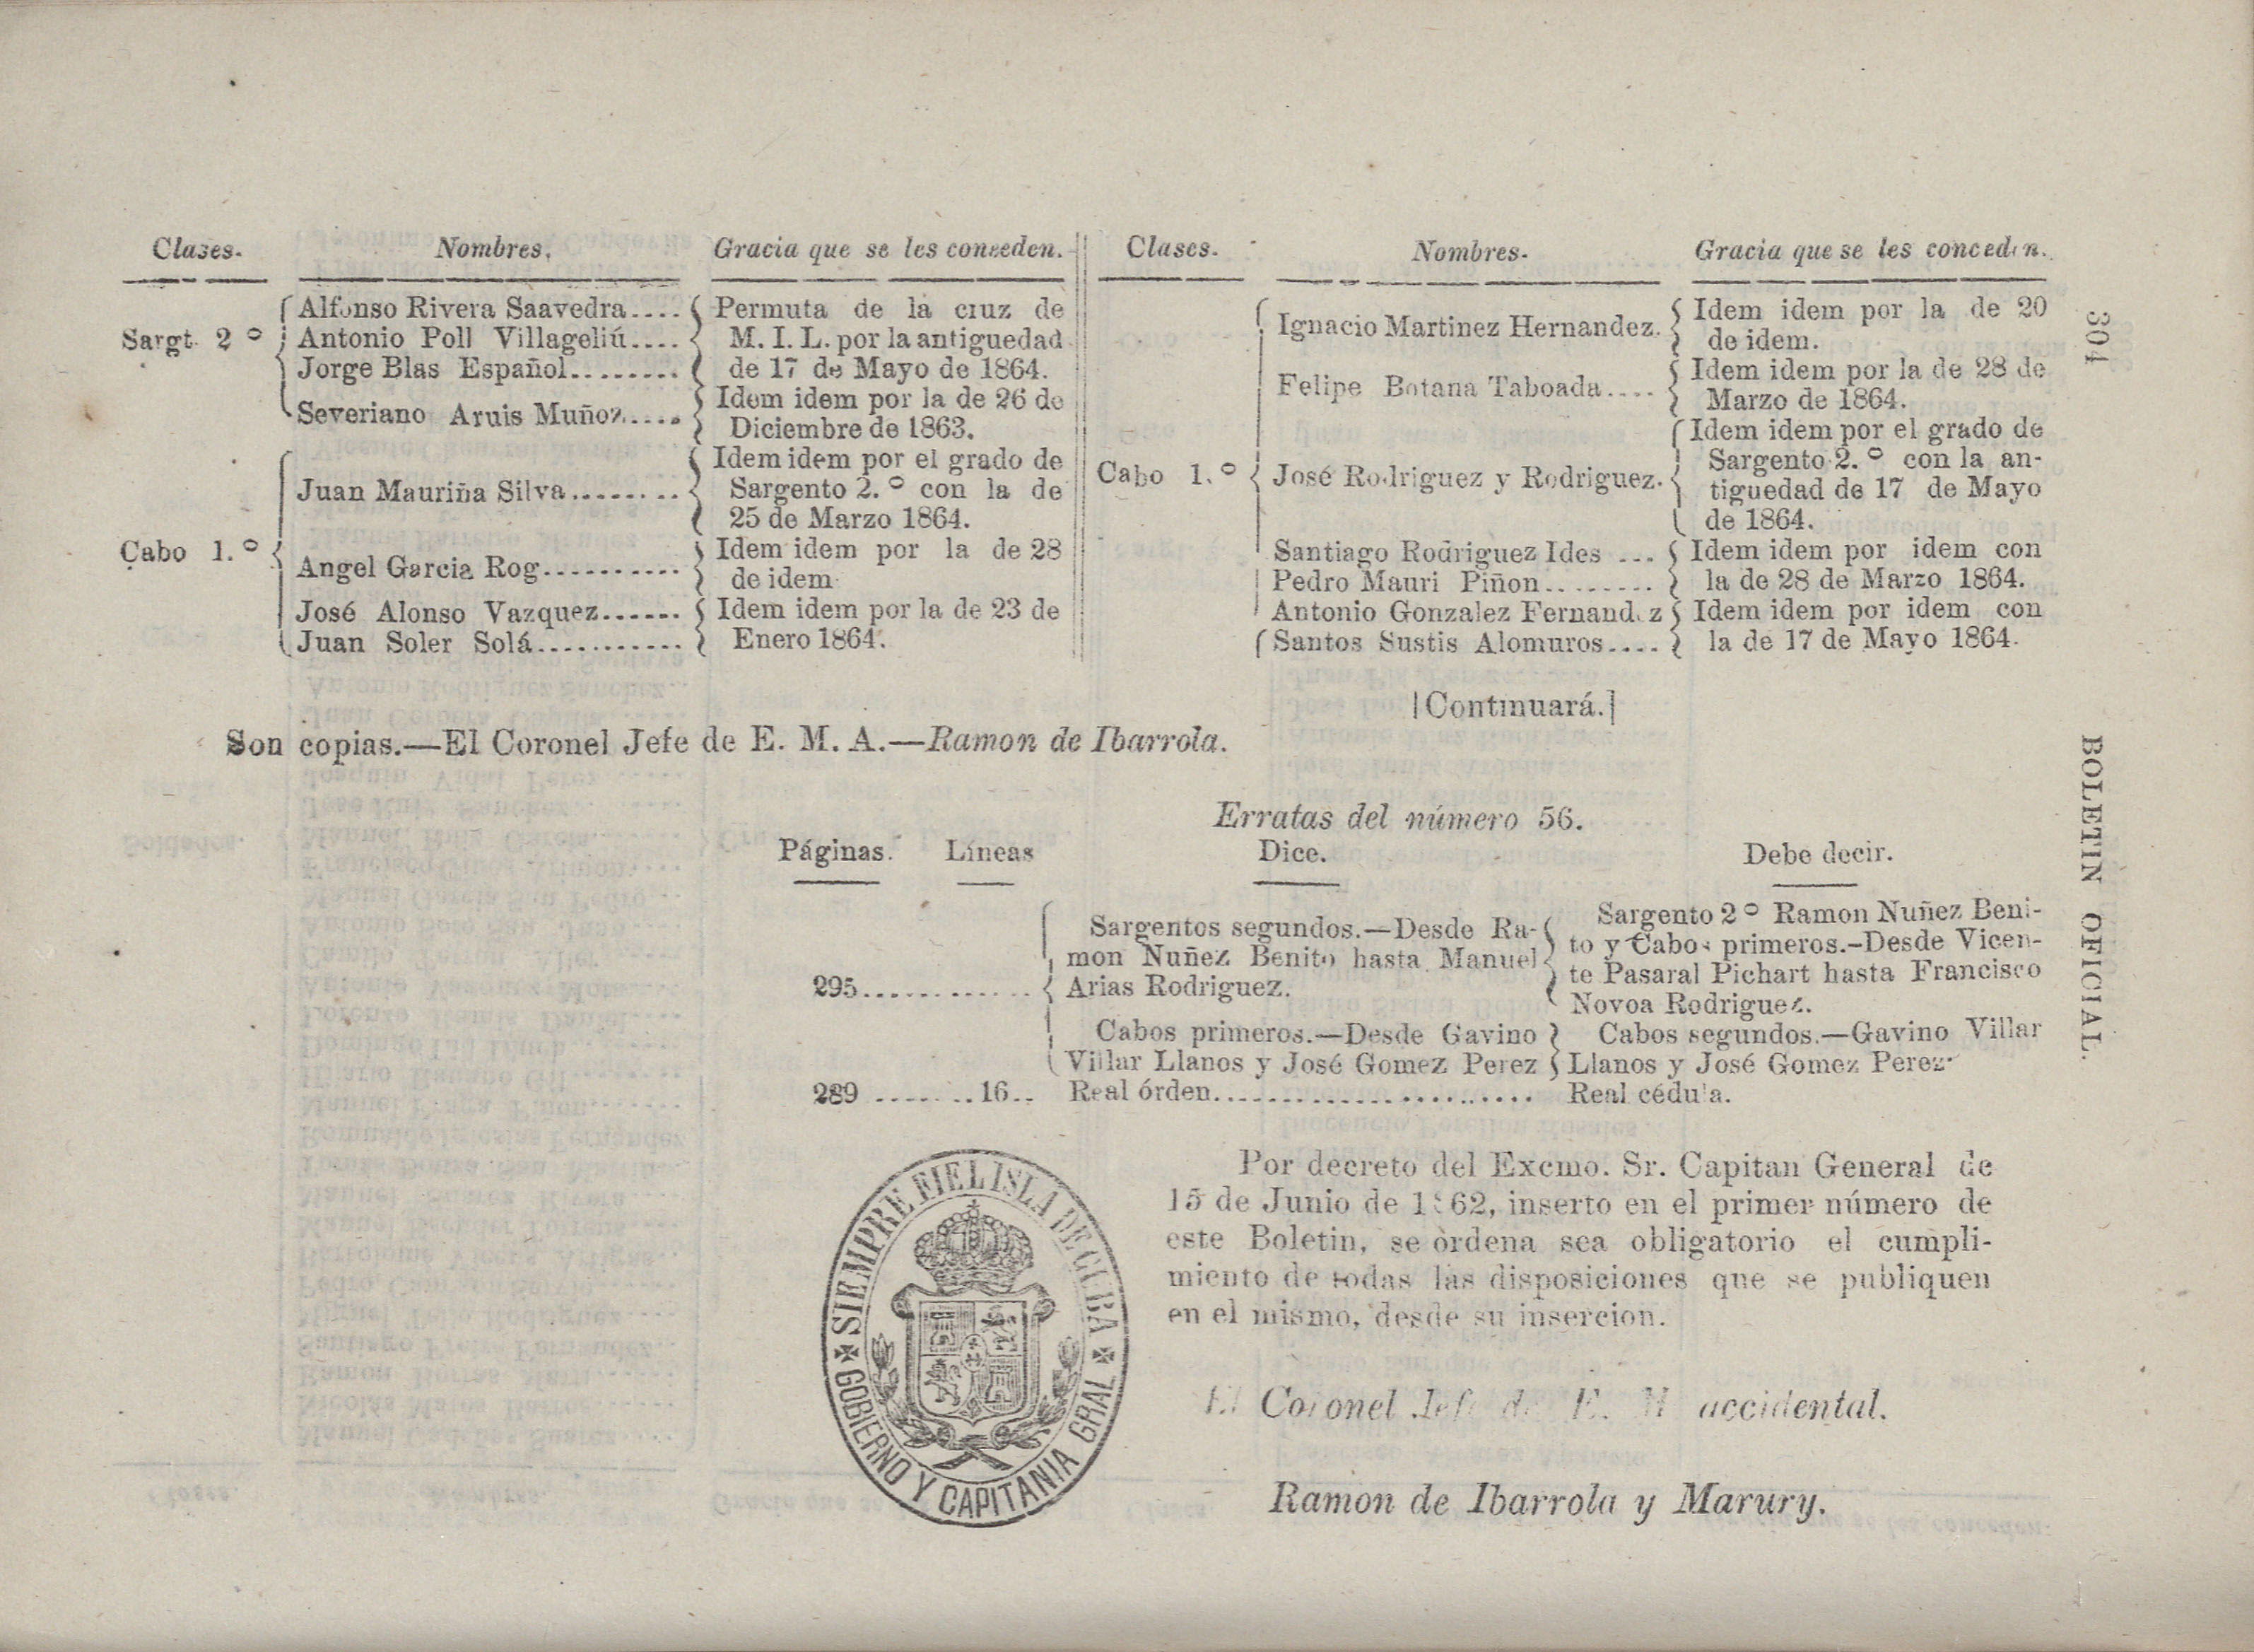 304
BOLETIN OFICIAL.
Clases. Nombres. Gracia que se les conceden.
Sargt. 2º
Alfonso Rivera Saavedra....
Antonio Poll Villageliú....
Jorge Blas Español........
Permuta de la cruz de
M. I. L. por la antiguedad
de 17 de Mayo de 1864.
Severiano Aruis Muñoz.....
Idem idem por la de 26 de
Diciembre de 1863.
Cabo 1.º
Juan Mauriña Silva.........
Idem idem por el grado de
Sargento 2.º con la de
25 de Marzo 1864.
Angel Garcia Rog...........
Idem idem por la de 28
de idem
José Alonso Vazquez.......
Juan Soler Solá............
Idem idem por la de 23 de
Enero 1864.
Clases. Nombres. Gracia que se les conceden.
Cabo 1.º
Ignacio Martinez Hernandez.
Idem idem por la de 20
de idem.
Felipe Botana Taboada....
Idem idem por la de 28 de
Marzo de 1864.
José Rodriguez y Rodriguez.
Idem idem por el grado de
Sargento 2.º con la an-
tiguedad de 17 de Mayo
de 1864.
Santiago Rodriguez Ides ...
Pedro Mauri Piñon.........
Idem idem por idem con
la de 28 de Marzo 1864.
Antonio Gonzalez Fernandez
Santos Sustis Alomuros....
Idem idem por idem con
la de 17 de Mayo 1864.
[Continuará.]
Son copias.—El Coronel Jefe de E. M. A.—Ramon de Ibarrola.
Erratas del número 56.
Páginas. Líneas Dice. Debe decir.
295.............
Sargentos segundos.—Desde Ra-
mon Nuñez Benito hasta Manuel
Arias Rodriguez.
Sargento 2º Ramon Nuñez Beni-
to y Cabos primeros.-Desde Vicen-
te Pasaral Pichart hasta Francisco
Novoa Rodriguez.
Cabos primeros.—Desde Gavino
Villar Llanos y José Gomez Perez
Cabos segundos.—Gavino Villar
Llanos y José Gomez Perez.
289 ........16.. Real órden........................ Real cédula.
SIEMPRE FIEL ISLA DE CUBA
GOBIERNO Y CAPITANIA GRAL
Por decreto del Excmo. Sr. Capitan General de
15 de Junio de 1862, inserto en el primer número de
este Boletin, se òrdena sea obligatorio el cumpli-
miento de todas las disposiciones que se publiquen
en el mismo, desde su insercion.
El Coronel Jefe de E. M accidental.
Ramon de Ibarrola y Marury.